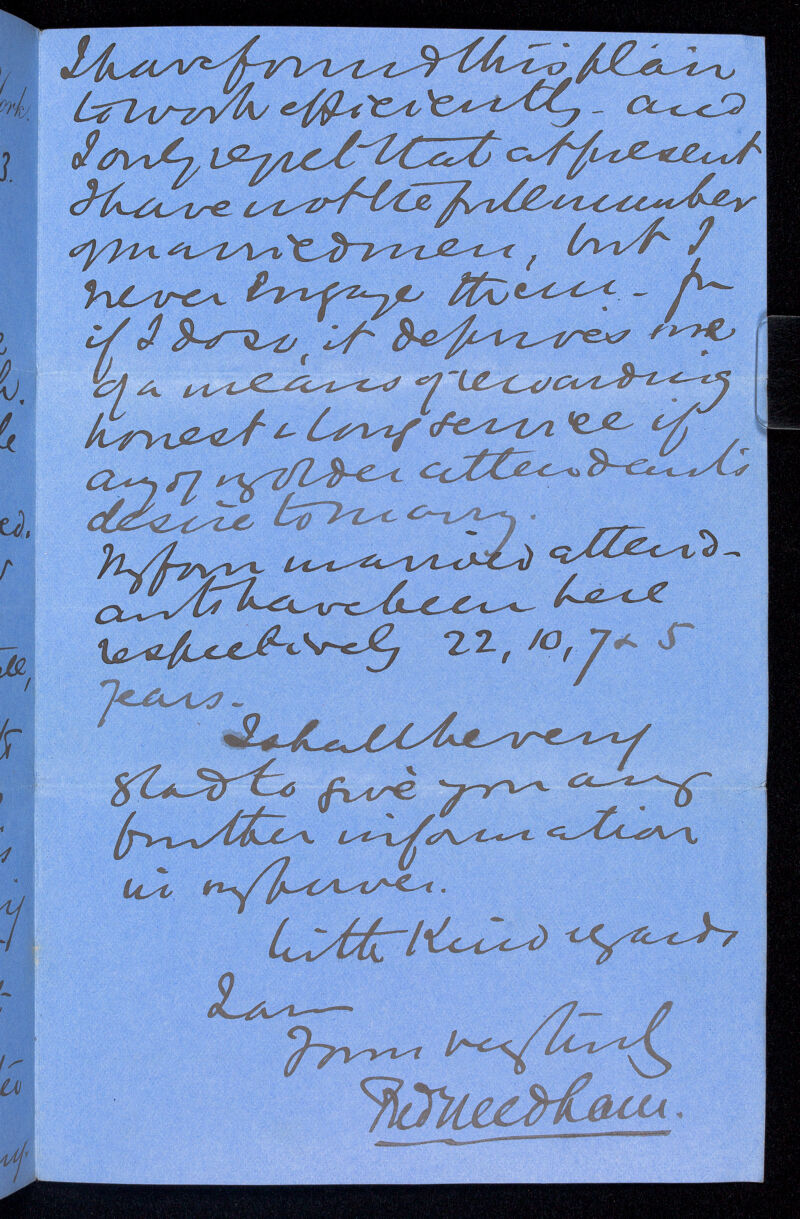 I have found this plan
to work efficiently - and
I only regret that at present
I have not the full number
of married men, but I
never Engage them - for
if I do so, it deprives me
of a means of rewarding
honest & long service if
any of my older attendants
desire to marry.
My four married attend-
ants have been here
respectively 22, 10, 7 & 5
years.
I shall be very
glad to give you any
further information
in my power.
With Kind regards
I am
Yours very truly
Fred Needham.
ork.
3.
h.
le
ed.